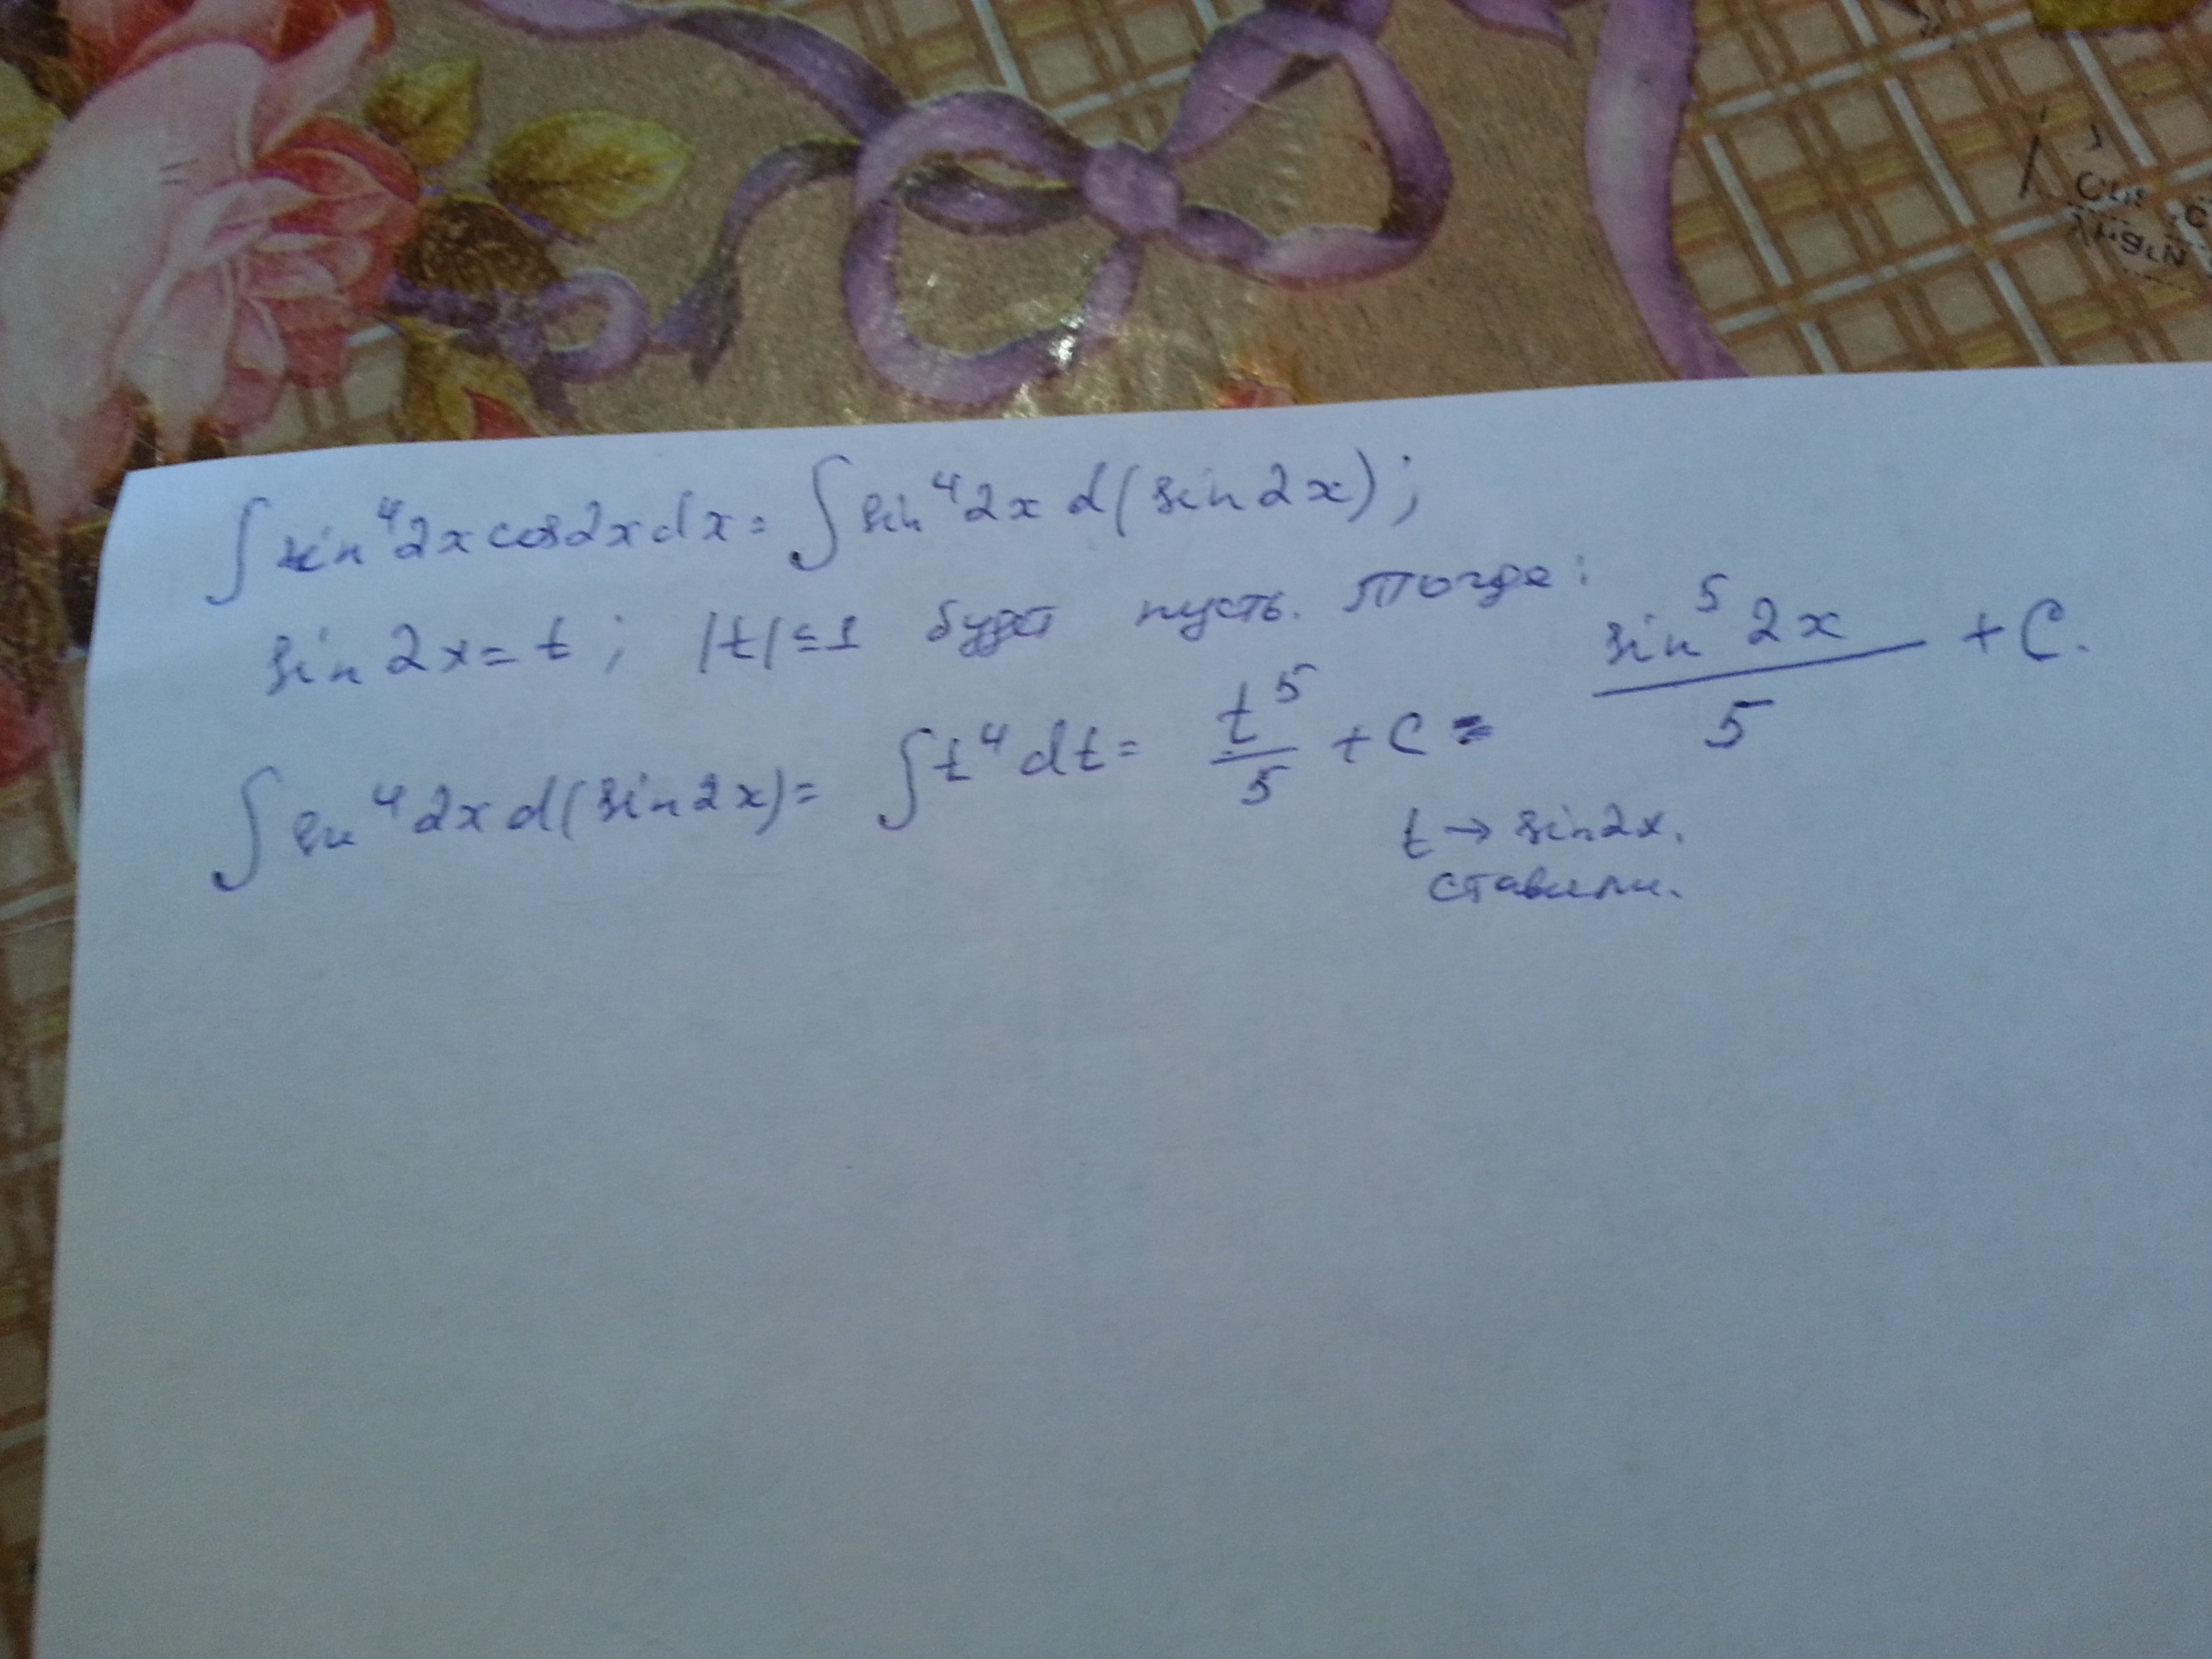 ∫ sin⁴2x cos2x dx = ∫ sin⁴2x d(sin2x);
sin 2x = t; |t|≤1 будет пусть. Тогда:
∫ sin⁴2x d(sin2x) = ∫ t⁴ dt = t⁵/5 + C = sin⁵2x/5 + C.
t → sin2x.
ставили.